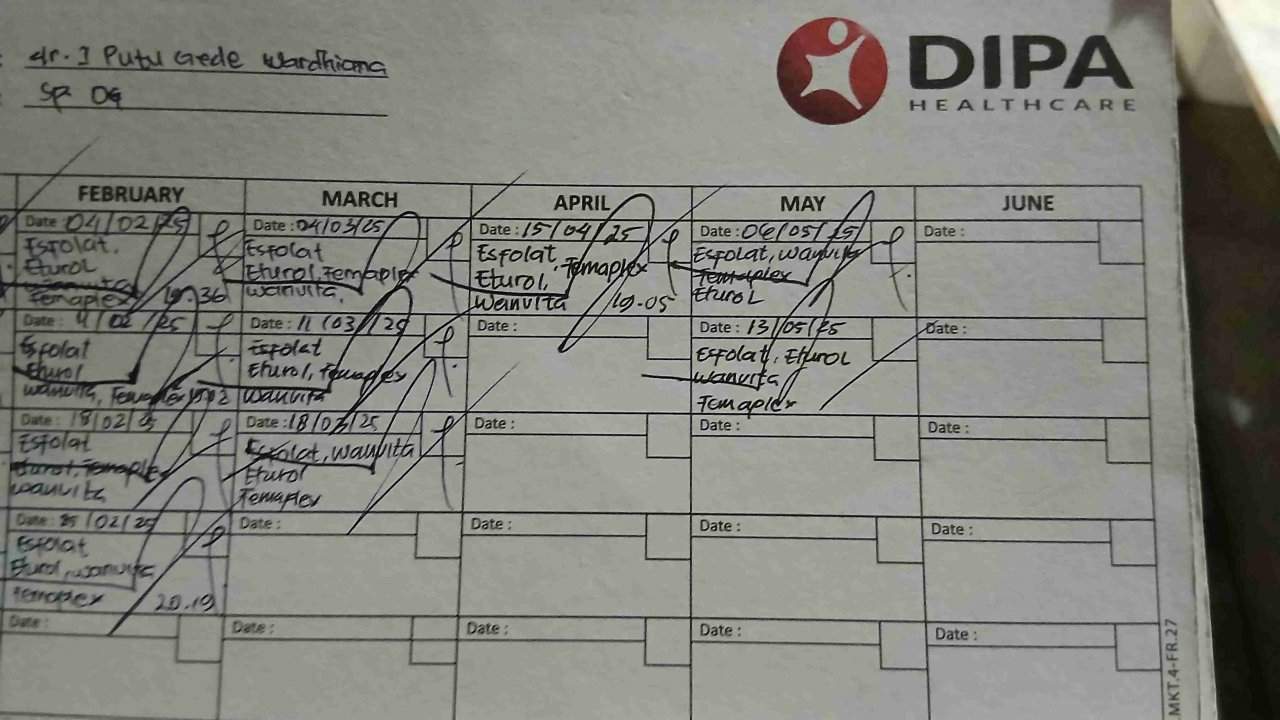 : dr. I Putu Gede Wardhiana
: Sp OG
DIPA
HEALTHCARE
FEBRUARY
MARCH
APRIL
MAY
JUNE
Date : 04/02/25
Esfolat.
Eturol
Wanvita
Temaplex 19.36
Date : 04/03/25
Esfolat
Eturol, Temaplex
Wanvita.
Date : 15/04/25
Esfolat,
Eturol, Temaplex
Wanvita 19.05
Date : 06/05/25
Esfolat, Wanvita
Temaplex
Eturol
Date :
Date : 11/02/25
Esfolat
Eturol
Wanvita, Temaplex
Date : 11/03/25
Esfolat
Eturol, Temaplex
Wanvita
Date :
Date : 13/05/25
Esfolat, Eturol
Wanvita
Temaplex
Date :
Date : 18/02/25
Esfolat
Eturol, Temaplex
Wanvita
Date : 18/03/25
Esfolat, Wanvita
Eturol
Temaplex
Date :
Date :
Date :
Date : 25/02/25
Esfolat
Eturol, Wanvita
Temaplex 20.19
Date :
Date :
Date :
Date :
Date :
Date :
Date :
Date :
Date :
MKT.4-FR.27